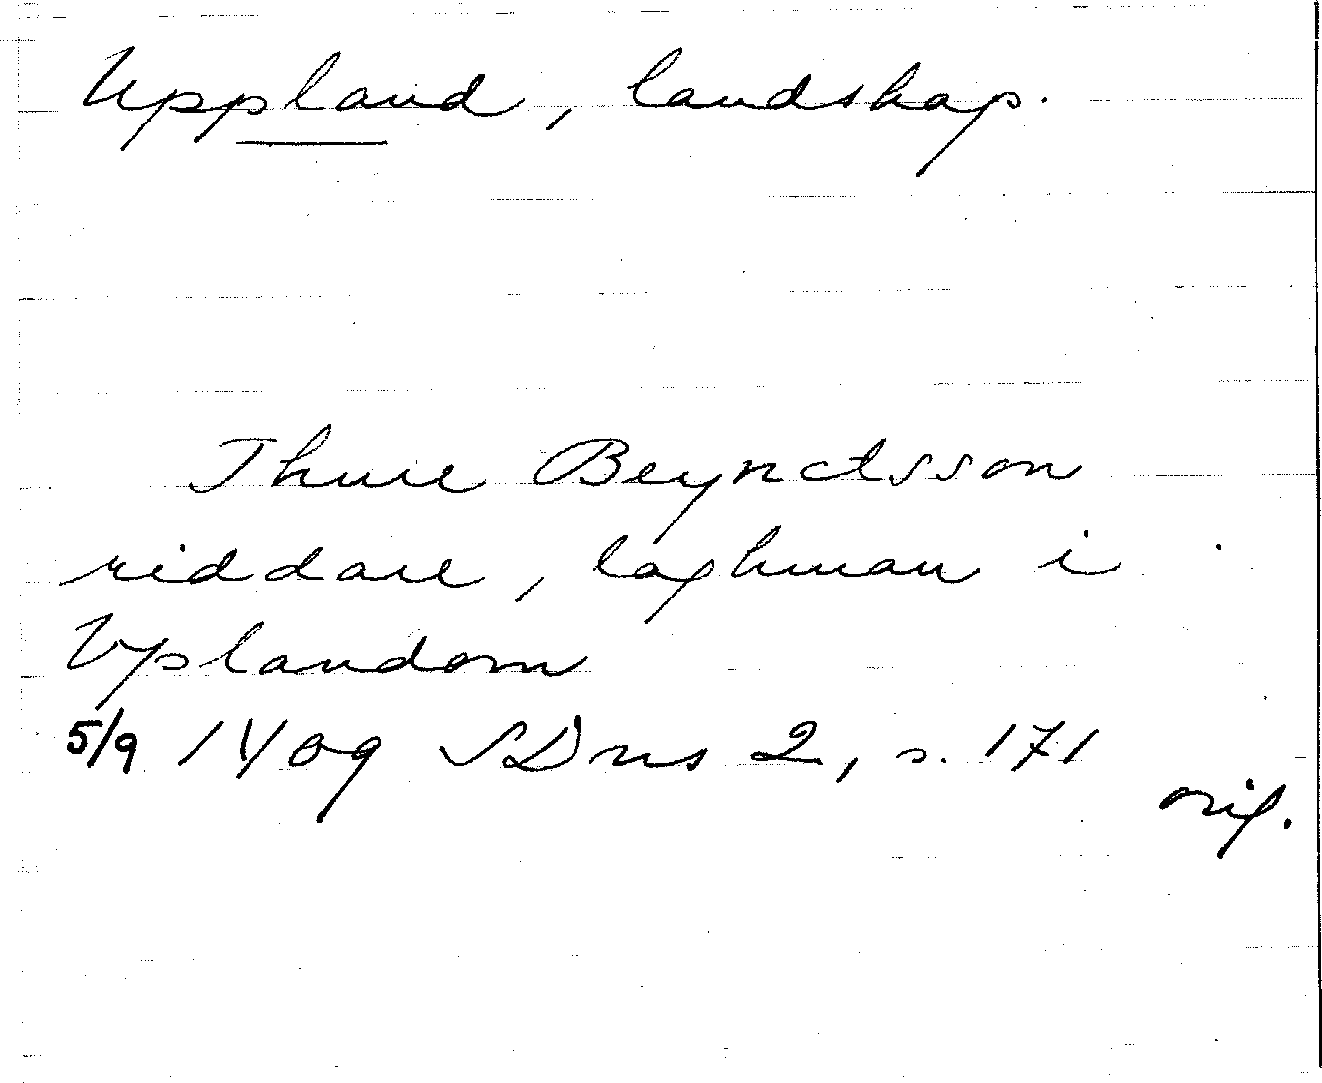 Uppland, landskap.
Thure Beynctsson
riddare, laghman i
Vplandom
5/9 1409 SDns 2, s. 171
orig.